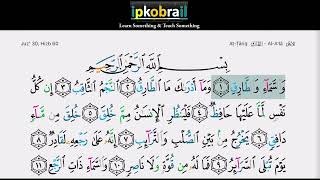 ipkobrail
Learn Something & Teach Something
Juz' 30, Hizb 60
At-Tāriq
بِسْمِ ٱللَّهِ ٱلرَّحْمَٰنِ ٱلرَّحِيمِ
وَٱلسَّمَآءِ وَٱلطَّارِقِ ١ وَمَآ أَدْرَىٰكَ مَا ٱلطَّارِقُ ٢ ٱلنَّجْمُ ٱلثَّاقِبُ ٣ إِن كُلُّ
نَفْسٍ لَّمَّا عَلَيْهَا حَافِظٌ ٤ فَلْيَنظُرِ ٱلْإِنسَٰنُ مِمَّ خُلِقَ ٥ خُلِقَ مِن مَّآءٍ
دَافِقٍ ٦ يَخْرُجُ مِنۢ بَيْنِ ٱلصُّلْبِ وَٱلتَّرَآئِبِ ٧ إِنَّهُۥ عَلَىٰ رَجْعِهِۦ لَقَادِرٌ ٨
يَوْمَ تُبْلَى ٱلسَّرَآئِرُ ٩ فَمَا لَهُۥ مِن قُوَّةٍ وَلَا نَاصِرٍ ١٠ وَٱلسَّمَآءِ ذَاتِ ٱلرَّجْعِ ١١